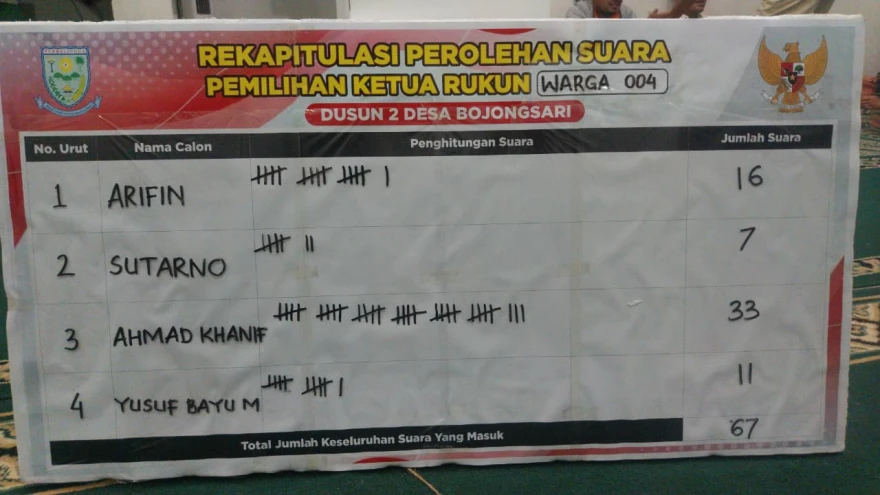 REKAPITULASI PEROLEHAN SUARA
PEMILIHAN KETUA RUKUN WARGA 004
DUSUN 2 DESA BOJONGSARI
No. Urut Nama Calon Penghitungan Suara Jumlah Suara
1 ARIFIN 16
2 SUTARNO 7
3 AHMAD KHANIF 33
4 YUSUF BAYU M 11
Total Jumlah Keseluruhan Suara Yang Masuk 67